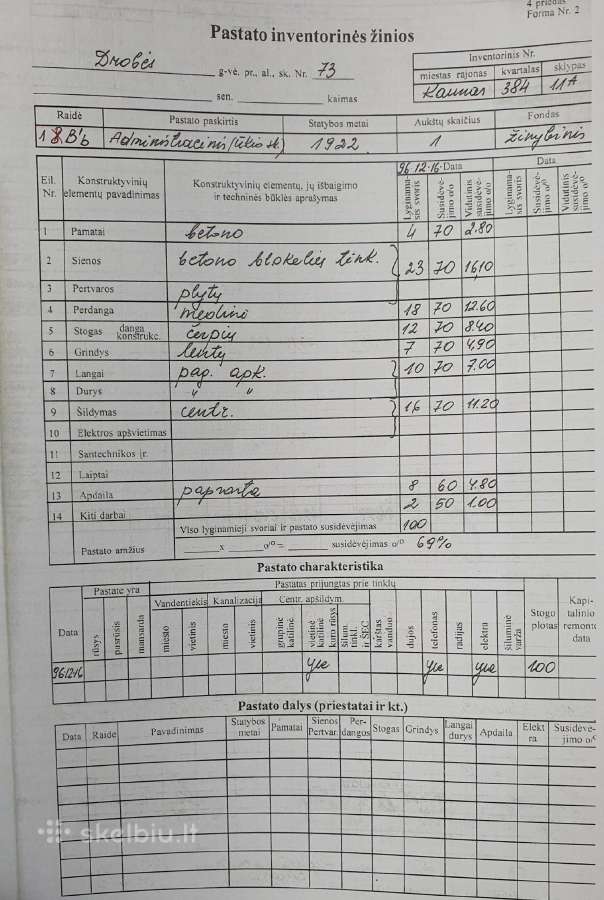 4 priedas
Forma Nr. 2
Pastato inventorinės žinios
Drobės g-vė, pr., al., sk. Nr. 73
sen. kaimas
Inventorinis Nr.
miestas rajonas kvartalas sklypas
Kaunas 384 11A
Raidė Pastato paskirtis Statybos metai Aukštų skaičius Fondas
1 B'b Administracinis (ūkio sk.) 1922 1 žinybinis
96 12.16. Data Data
Eil. Nr. Konstruktyvinių elementų pavadinimas Konstruktyvinių elementų, jų išbaigimo ir techninės būklės aprašymas Lyginamasis svoris Susidėvėjimo o/o Vidutinis susidėvėjimo o/o Lyginamasis svoris Susidėvėjimo o/o Vidutinis susidėvėjimo o/o
1 Pamatai betono 4 70 2.80
2 Sienos betono blokelių tink. 23 70 16,10
3 Pertvaros plytų
4 Perdanga medinė 18 70 12.60
5 Stogas danga konstrukc. čerpių 12 70 8.40
6 Grindys lentų 7 70 4,90
7 Langai pap. apk. 10 70 7.00
8 Durys " "
9 Šildymas centr. 16 70 11.20
10 Elektros apšvietimas
11 Santechnikos įr.
12 Laiptai
13 Apdaila paprasta 8 60 4.80
14 Kiti darbai 2 50 1.00
Viso lyginamieji svoriai ir pastato susidėvėjimas 100
Pastato amžius x o/o = susidėvėjimas o/o 69%
Pastato charakteristika
Pastate yra Pastatas prijungtas prie tinklų
Vandentiekis Kanalizacija Centr. apšildym.
Data rūsys pusrūsis mansarda miesto vietinis miesto vietinis grupinė katilinė vietinė katilinė kuro rūšys šilum. tinkl. ir ŠEC karštas vanduo dujos telefonas radijas elektra šiluminė varža Stogo plotas Kapitalinio remonto data
96.12.16 yra yra yra 100
Pastato dalys (priestatai ir kt.)
Data Raidė Pavadinimas Statybos metai Pamatai Sienos Pertvar. Perdangos Stogas Grindys Langai durys Apdaila Elektra Susidėvėjimo o/o
skelbiu.lt